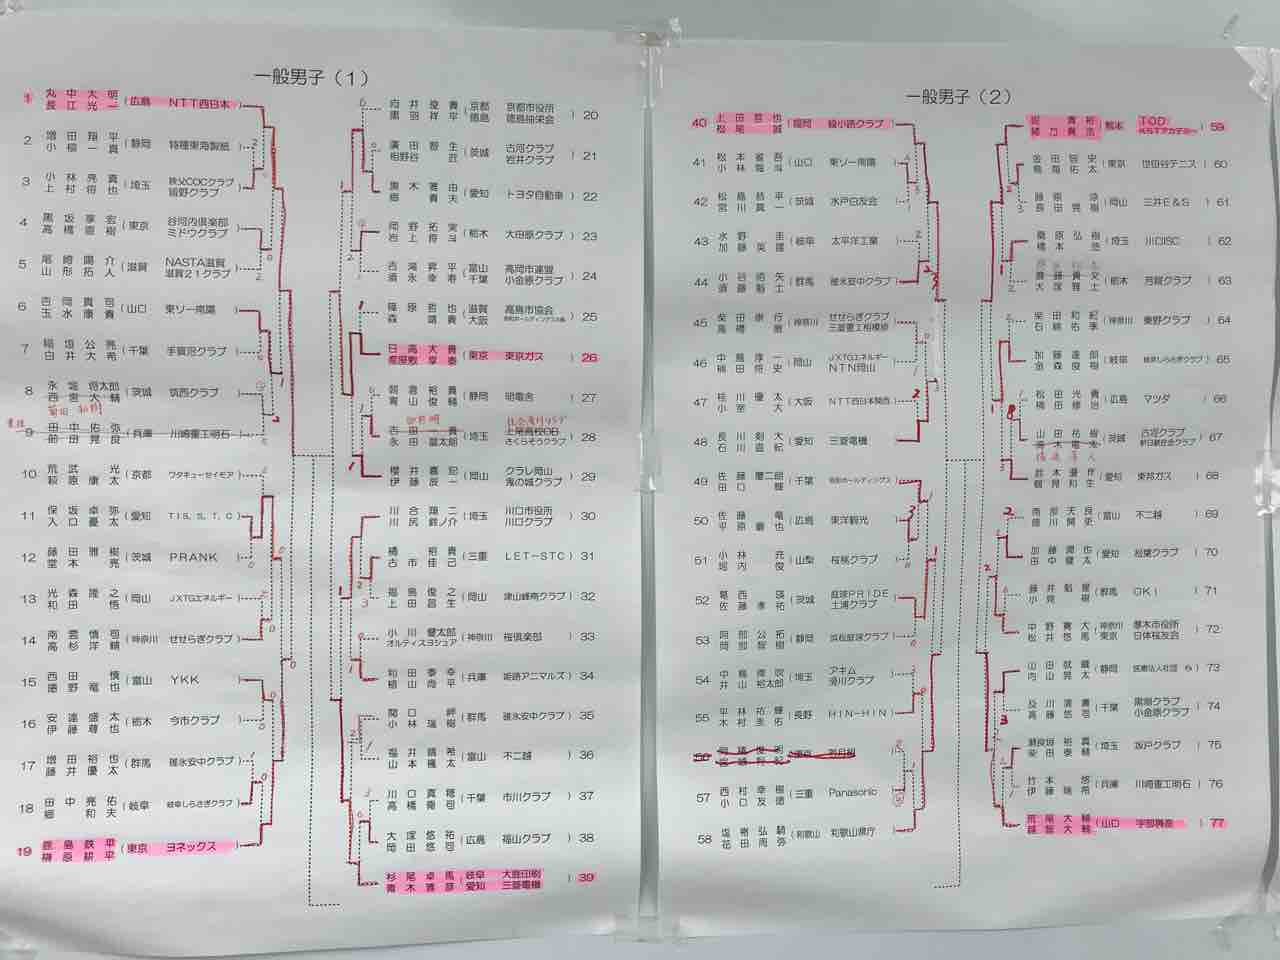 一般男子（１）
1 丸中大明 長江光一 （広島 ＮＴＴ西日本）
2 増田翔平 小栁一真 （静岡 特種東海製紙）
3 小林亮真 上村将也 （埼玉 秩父COCクラブ 皆野クラブ）
4 黒坂享宏 高橋直樹 （東京 谷河内倶楽部 ミドウクラブ）
5 尾崎陽介 山形拓人 （滋賀 NASTA滋賀 滋賀２１クラブ）
6 吉岡真司 玉水康貴 （山口 東ソー南陽）
7 稲垣公亮 白井大希 （千葉 手賀沼クラブ）
8 永堀将太郎 西宮大輔 （茨城 筑西クラブ）
9 田中佑弥 前田晃良 （兵庫 川崎重工明石）
10 荒武光 萩原康太 （京都 ワタキューセイモア）
11 保坂卓弥 入口優太 （愛知 T I S, S, T, C）
12 藤田雅樹 堂本亮 （茨城 PRANK）
13 光森隆之 和田悟 （岡山 JXTGエネルギー）
14 南雲慎司 高杉洋輔 （神奈川 せせらぎクラブ）
15 西田慎 園野竜也 （富山 YKK）
16 安達盛太 伊藤尊也 （栃木 今市クラブ）
17 増田裕也 藤井優太 （群馬 碓氷安中クラブ）
18 田中亮佑 郷和夫 （岐阜 岐阜しらさぎクラブ）
19 鹿島鉄平 榊原耕平 （東京 ヨネックス）
向井俊貴 黒羽祥平 （京都 徳島 京都市役所 徳島柚栄会） 20
廣田智生 相野谷匠 （茨城 古河クラブ 岩井クラブ） 21
黒木雅由 郷貴夫 （愛知 トヨタ自動車） 22
岡野拓実 岩上将斗 （栃木 大田原クラブ） 23
古滝昇平 須永幸寿 （富山 千葉 高岡市連盟 小金原クラブ） 24
篠原哲也 森靖貴 （滋賀 大阪 高島市協会） 25
日高大貴 産屋敷享泰 （東京 東京ガス） 26
朝倉裕貴 青山俊輔 （静岡 明電舎） 27
吉田一貴 永田誠太朗 （埼玉 上尾高校OB さくらそうクラブ） 28
櫻井喜記 伊藤辰一 （岡山 クラレ岡山 鬼の城クラブ） 29
川合翔二 川尻銀ノ介 （埼玉 川口市役所 川口クラブ） 30
橋裕貴 古市佳己 （三重 LET-STC） 31
福島俊之 上田昌生 （岡山 津山峰南クラブ） 32
小川健太郎 オルティスヨシュア （神奈川 桜倶楽部） 33
和田泰幸 植山尚平 （兵庫 姫路アニマルズ） 34
関口岬 小林瑞樹 （群馬 碓氷安中クラブ） 35
福井晴希 山本楓太 （富山 不二越） 36
川口真穂 高橋優司 （千葉 市川クラブ） 37
大塚悠祐 岡田悠司 （広島 福山クラブ） 38
杉尾卓馬 青木雅彦 （岐阜 愛知 大鹿印刷 三菱電機） 39
一般男子（２）
40 上田哲也 松尾誠 （福岡 綾小路クラブ）
41 松本省吾 小林雅斗 （山口 東ソー南陽）
42 松島恭平 宮川真一 （茨城 水戸白友会）
43 水野圭 加藤英雄 （岐阜 太平洋工業）
44 小谷皓矢 須藤魁士 （群馬 碓氷安中クラブ）
45 柴田崇行 高橋麿 （神奈川 せせらぎクラブ 三菱重工相模原）
46 中島淳一 植田将史 （岡山 JXTGエネルギー NTN岡山）
47 桂川優太 小笠大 （大阪 NTT西日本関西）
48 長川剣大 石川直紀 （愛知 三菱電機）
49 佐藤慶二郎 田口輝 （千葉）
50 佐藤竜 平原慶也 （広島 東洋観光）
51 小林充 堀内俊 （山梨 桜桃クラブ）
52 葛西瑛 佐藤孝祐 （茨城 庭球PRIDE 土浦クラブ）
53 阿部公拓 岡部智樹 （静岡 浜松庭球クラブ）
54 中島俊吹 井山裕太郎 （埼玉 アキム 滑川クラブ）
55 平林祐輝 木村圭佑 （長野 HIN-HIN）
56
57 西村幸樹 小口友徳 （三重 Panasonic
58 塩嵜弘騎 花田周弥 （和歌山 和歌山県庁
堀貴裕 緒方貴浩 （熊本 TOD） 59
金田智史 鳥海佑太 （東京 世田谷テニス） 60
藤原涼 長田晃樹 （岡山 三井E＆S） 61
桑原弘樹 橋本悠 （埼玉 川口ISC） 62
齋藤貴文 大塚雅士 （栃木 芳賀クラブ） 63
柴田和紀 石綿佑季 （神奈川 秦野クラブ） 64
加藤達郎 金森俊樹 （岐阜 岐阜しらさぎクラブ） 65
松田光貴 桶田修治 （広島 マツダ） 66
山田祐樹 （茨城 古河クラブ） 67
鈴木湧作 鶴見和生 （愛知 東邦ガス） 68
南部天良 徳川開史 （富山 不二越） 69
加藤潤也 田中健太 （愛知 松葉クラブ） 70
藤井魁星 小見樹 （群馬 OKI） 71
中野寛大 松井悠馬 （神奈川 東京 厚木市役所 日体桜友会） 72
山田就蔵 内山晃太 （静岡 医療法人社団 6） 73
及川清貴 高藤悠司 （千葉 黒潮クラブ 小金原クラブ） 74
瀬良垣裕真 柴田泰輔 （埼玉 坂戸クラブ） 75
竹本悠 伊藤瑞希 （兵庫 川崎重工明石） 76
荒尾大輔 越智大輔 （山口 宇部興産） 77